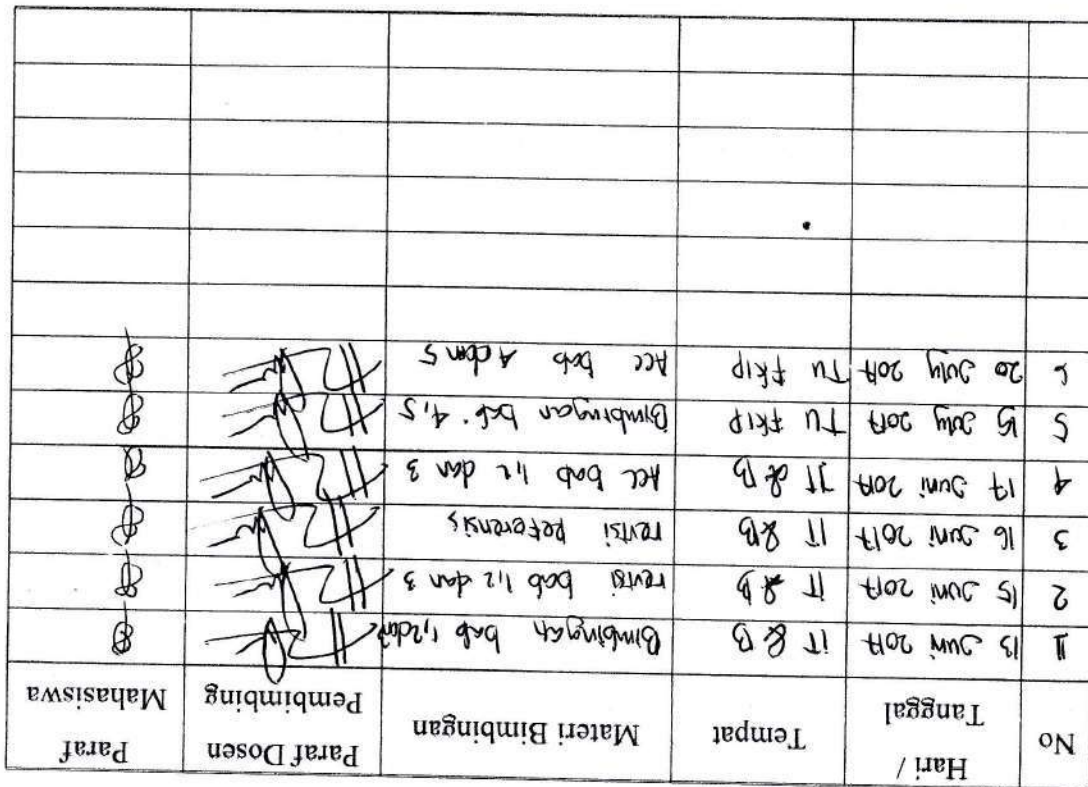 No Hari / Tanggal Tempat Materi Bimbingan Paraf Dosen Pembimbing Paraf Mahasiswa
1 13 Juni 2017 iT & B Bimbingan bab 1,2 dan 3
2 15 Juni 2017 iT & B revisi bab 1,2 dan 3
3 16 Juni 2017 iT & B revisi Referensi
4 17 Juni 2017 IT & B Acc bab 1,2 dan 3
5 15 July 2017 TU FKIP Bimbingan bab 4,5
6 20 July 2017 TU FKIP Acc bab 4 dan 5